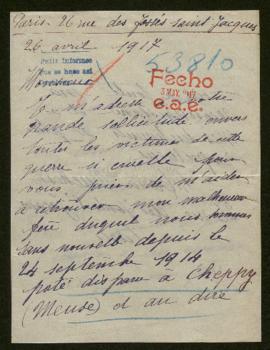 Paris. 26 rue des Fossés Saint Jacques
26 avril 1917
53810
Pido informes
Fecho
3 MAY. 917
e.a.e.
Monsieur
Je m'adresse à votre
grande sollicitude envers
toutes les victimes de cette
guerre si cruelle pour
vous prier de m'aider
à retrouver mon malheureux
frère duquel nous sommes
sans nouvelle depuis le
24 septembre 1914
porté disparu à Cheppy
(Meuse) et au dire